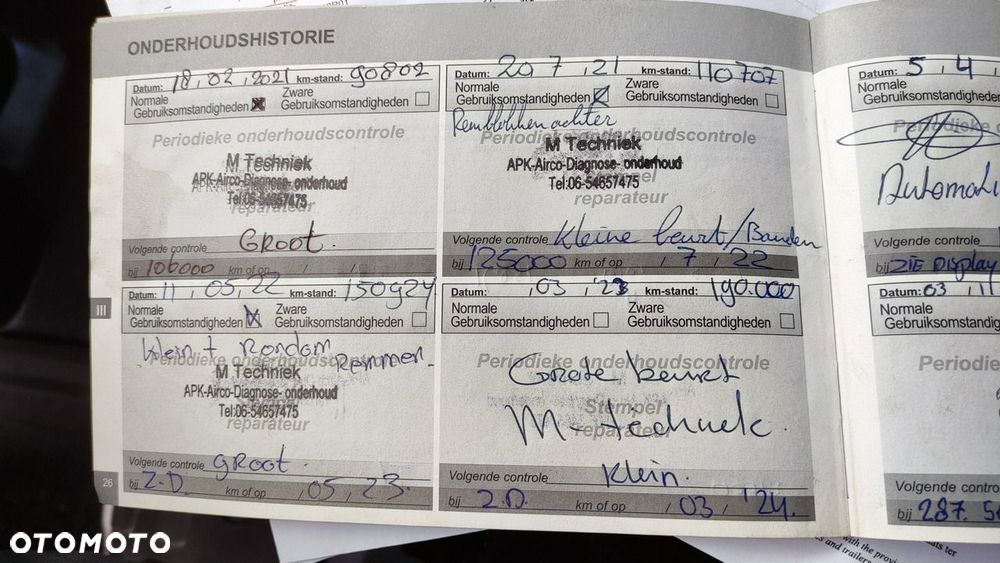 ONDERHOUDSHISTORIE
Datum: 18, 02, 2021 km-stand: 90802
Normale
Gebruiksomstandigheden
Zware
Gebruiksomstandigheden
Periodieke onderhoudscontrole
M Techniek
APK-Airco-Diagnose- onderhoud
Tel:06-54657475
reparateur
Volgende controle GROOT.
bij 106000 km of op / /
Datum: 20 7 , 21 km-stand: 110707
Normale
Gebruiksomstandigheden
Zware
Gebruiksomstandigheden
Remblokken achter
Periodieke onderhoudscontrole
M Techniek
APK-Airco-Diagnose- onderhoud
Tel:06-54657475
Stempel
reparateur
Volgende controle Kleine beurt/Banden
bij 125000 km of op / 7 / 22
Datum: 11 , 05, 22 km-stand: 150924
Normale
Gebruiksomstandigheden
Zware
Gebruiksomstandigheden
Klein + Rondom Remmen.
Periodieke onderhoudscontrole
M Techniek
APK-Airco-Diagnose- onderhoud
Stempel
Tel:06-54657475
reparateur
Volgende controle GROOT.
bij Z.D. km of op , 05 , 23.
Datum: , 03 , 23 km-stand: 190.000
Normale
Gebruiksomstandigheden
Zware
Gebruiksomstandigheden
Periodieke onderhoudscontrole
Grote beurt
Stempel
M-techniek.
reparateur
Volgende controle Klein.
bij Z.D. km of op / 03 / '24.
Datum: 5 , 4 ,
Normale
Gebruiksomstandig
Periodieke
Automati
Volgende controle
bij ZIE Display
Datum: 03 , 11
Normale
Gebruiksomstandig
Periodiek
Volgende contro
bij 287.
III
26
OTOMOTO
with the provi
s and trailers